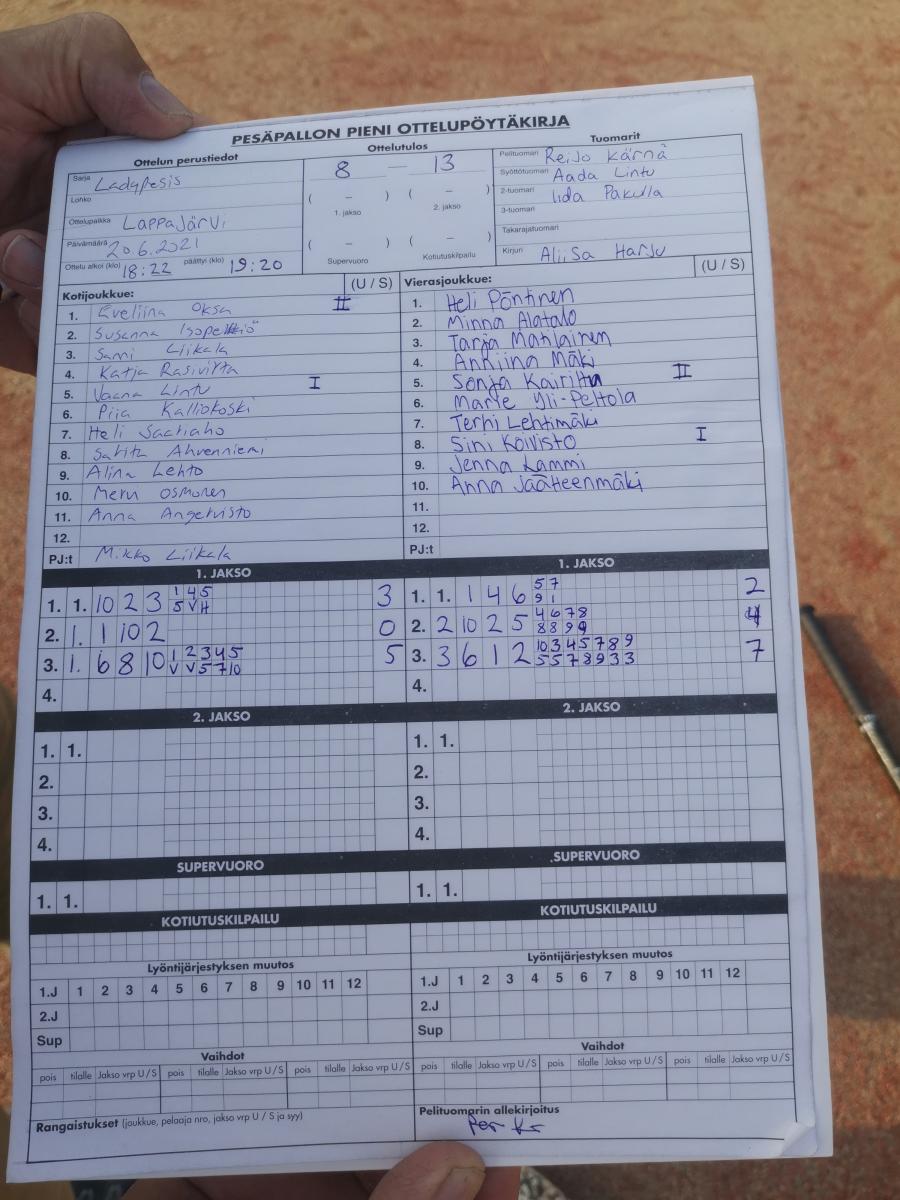 PESÄPALLON PIENI OTTELUPÖYTÄKIRJA
Ottelun perustiedot
Sarja Ladypesis
Lohko
Ottelupaikka Lappajärvi
Päivämäärä 20.6.2021
Ottelu alkoi (klo) 18:22 päättyi (klo) 19:20
Ottelutulos
8 — 13
( – ) ( – )
1. jakso 2. jakso
( – ) ( – )
Supervuoro Kotiutuskilpailu
Tuomarit
Pelituomari Reijo Kärnä
Syöttötuomari Aada Lintu
2-tuomari Iida Pakulla
3-tuomari
Takarajatuomari
Kirjuri Aliisa Harju
Kotijoukkue: (U / S)
1. Eveliina Oksa II
2. Susanna
3. Sami Liikala
4. Katja Rasivirta
5. Lintu I
6. Piia Kalliokoski
7. Heli
8. Ahvenniemi
9. Alina Lehto
10. Meru Osmonen
11. Anna Angervisto
12.
PJ:t Mikko Liikala
Vierasjoukkue: (U / S)
1. Heli Pöntinen
2. Minna Alatalo
3. Tarja Matilainen
4. Anniina Mäki
5. Sonja II
6. Yli-Peltola
7. Terhi Lehtimäki
8. Sini Koivisto I
9. Jenna Lammi
10. Anna Jääteenmäki
11.
12.
PJ:t
1. JAKSO
1. 1. 10 2 3 1 4 5 3
5 V H
2. 1. 1 10 2 0
3. 1. 6 8 10 1 2 3 4 5 5
V V 5 7 10
4.
1. JAKSO
1. 1. 1 4 6 5 7 2
9 1
2. 2 10 2 5 4 6 7 8 4
8 8 9 9
3. 3 6 1 2 10 3 4 5 7 8 9 7
5 5 7 8 9 3 3
4.
2. JAKSO
1. 1.
2.
3.
4.
2. JAKSO
1. 1.
2.
3.
4.
SUPERVUORO
1. 1.
SUPERVUORO
1. 1.
KOTIUTUSKILPAILU
KOTIUTUSKILPAILU
Lyöntijärjestyksen muutos
1.J 1 2 3 4 5 6 7 8 9 10 11 12
2.J
Sup
Lyöntijärjestyksen muutos
1.J 1 2 3 4 5 6 7 8 9 10 11 12
2.J
Sup
Vaihdot
pois tilalle Jakso vrp U / S pois tilalle Jakso vrp U / S pois tilalle Jakso vrp U / S
Vaihdot
pois tilalle Jakso vrp U / S pois tilalle Jakso vrp U / S pois tilalle Jakso vrp U / S
Rangaistukset (joukkue, pelaaja nro, jakso vrp U / S ja syy)
Pelituomarin allekirjoitus